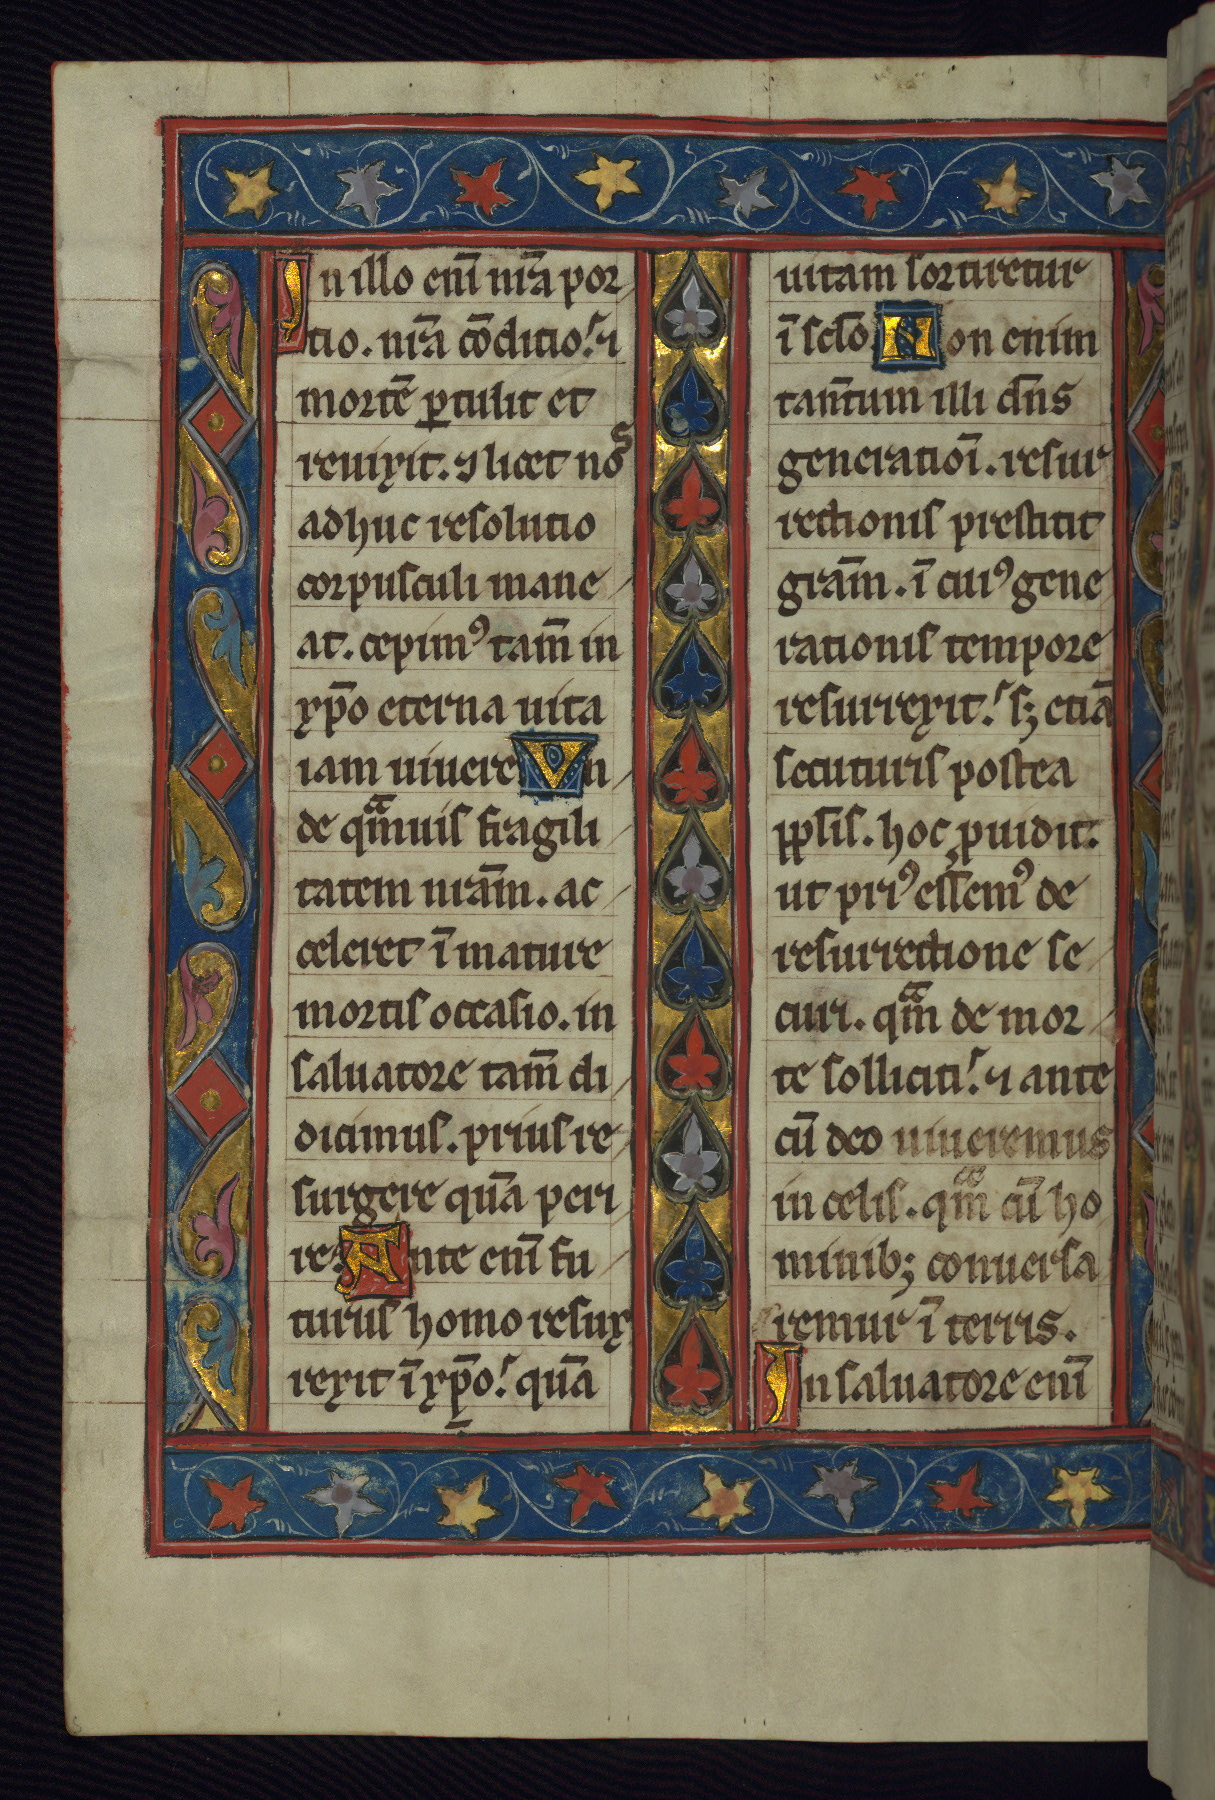 In illo eni̅ nr̅a por
tio. nr̅a co̅ditio. ⁊
morte̅ ꝑtulit et
reuixit. ⁊ licet nos
adhuc resolutio
corpusculi mane
at. cepimꝰ tam̅ in
xp̅o eterna uita
iam uiuere Vn
de qͣm̅uis fragili
tatem nr̅am. ac
celeret i̅ mature
mortis occasio. in
saluatore tam̅ di
dicimus. prius re
surgere qua̅ peri
re. Ante eni̅ fu
turus homo resux
rexit i̅ xp̅o. qua̅
uitam sortiretur
i̅ sclo̅ Non enim
tan̅tum illi dn̅s
generatioi̅. resur
rectionis prestitit
gram̅. i̅ cuiꝰ gene
rationis tempore
resurrexit. sꝫ etia̅
secuturis postea
pp̅sis. hoc ꝓuidit.
ut priꝰ essemꝰ de
resurrectione se
curi. qͣm̅ de mor
te solliciti. ⁊ ante
cu̅ deo uiueremus
in celis. qͣm̅ cu̅ ho
minibꝫ conuersa
remur i̅ terris.
In saluatore eni̅